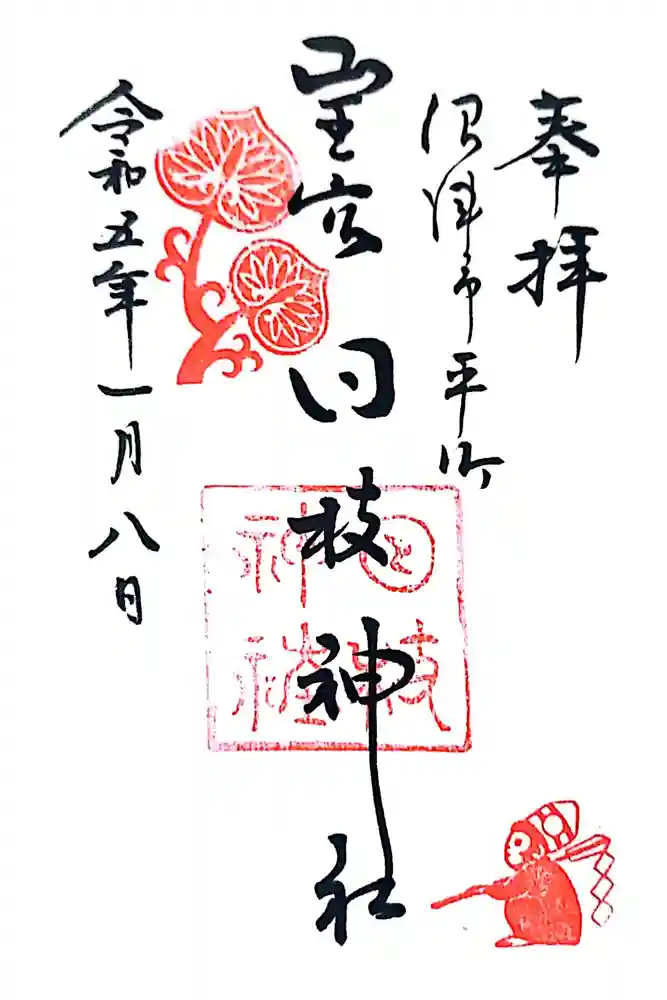 奉拝
沼津市平町
山王宮 日枝神社
令和五年一月八日
日枝
神社